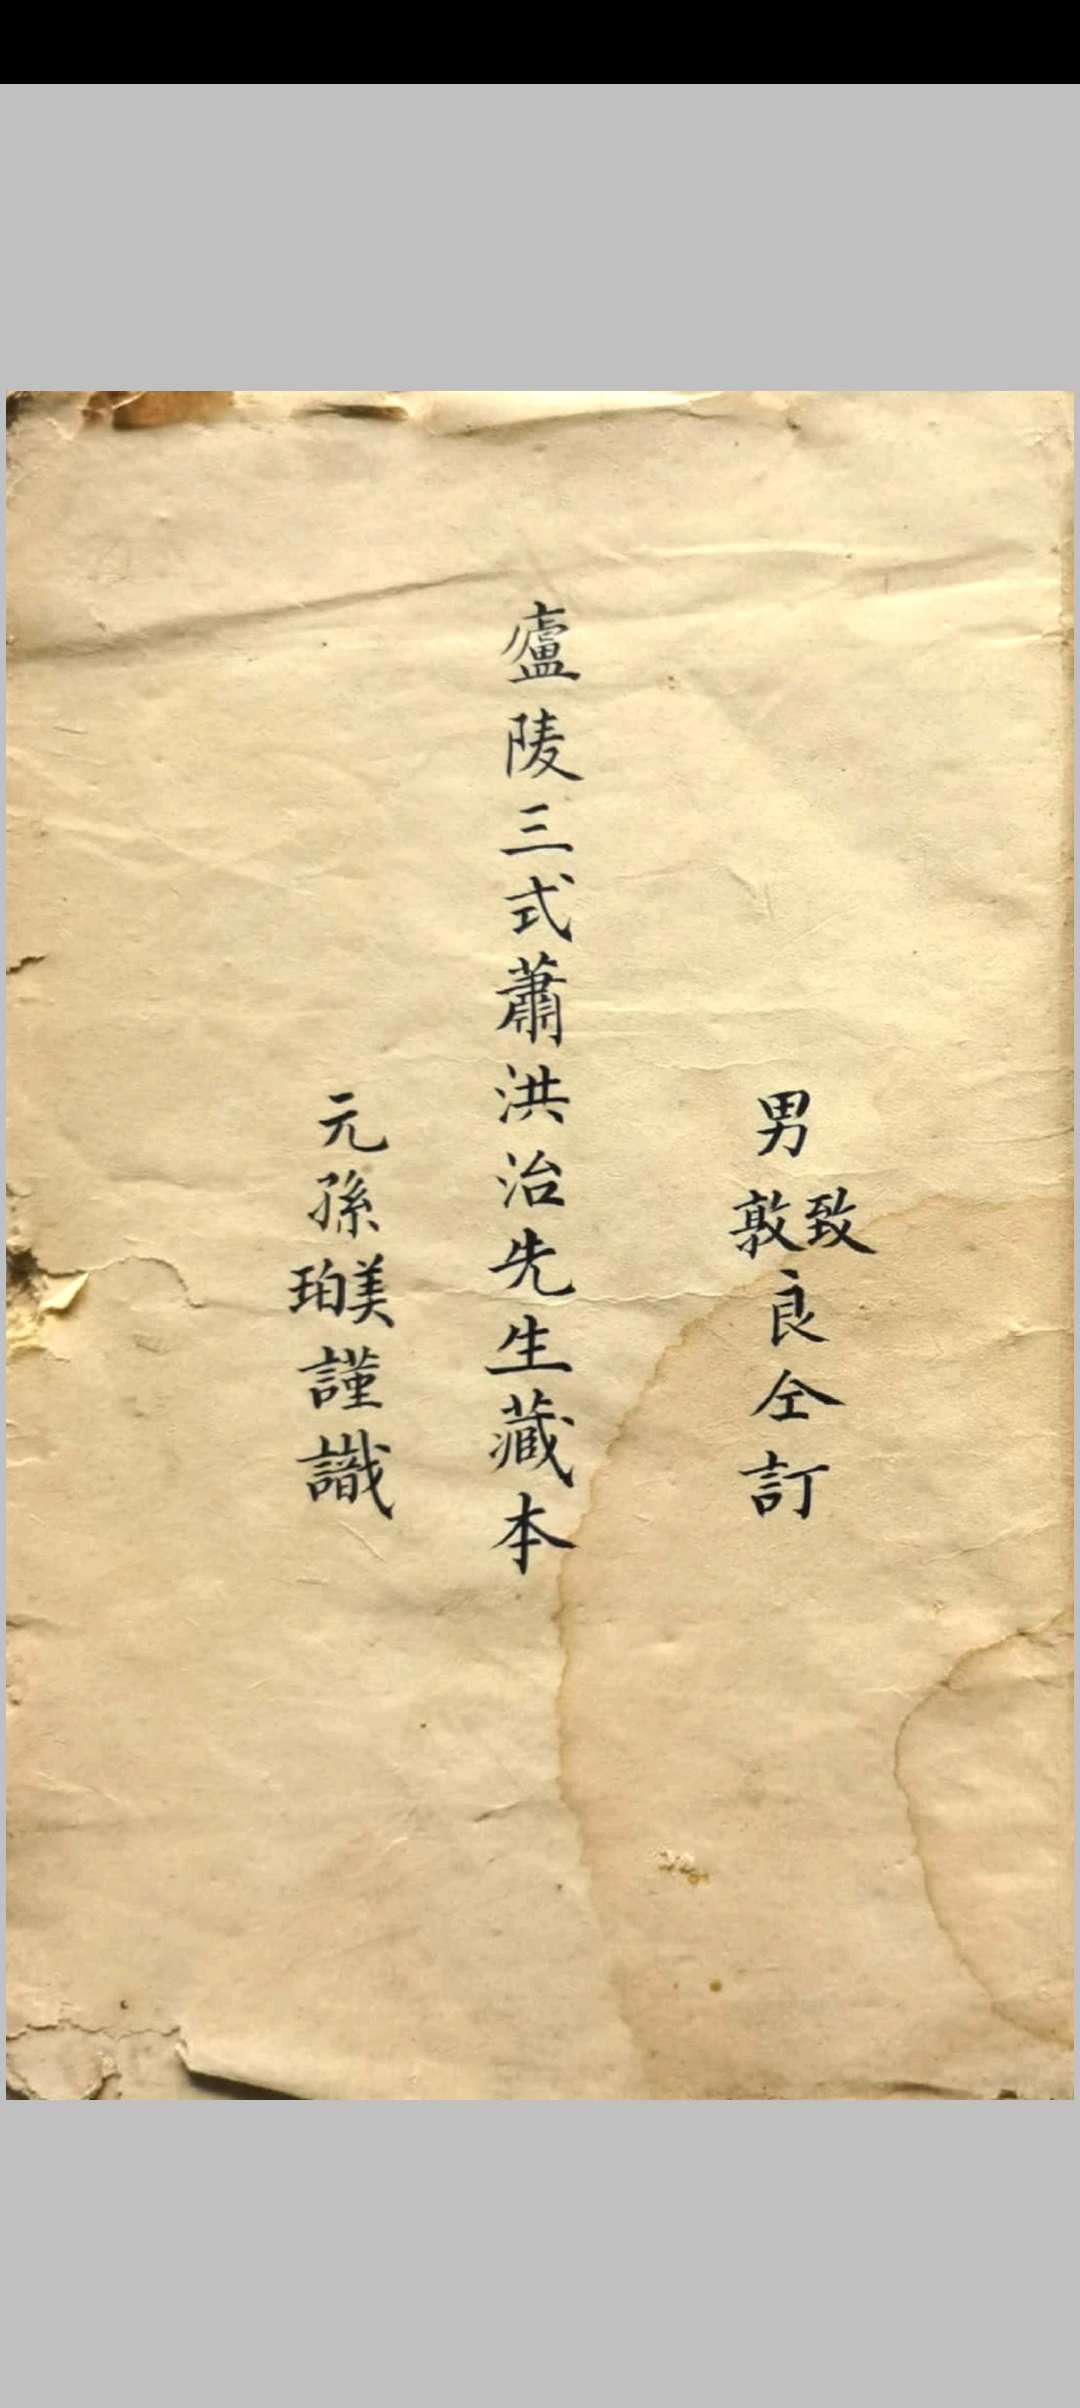 男致敦良仝訂
廬陵三式蕭洪治先生藏本
元孫美珀謹識